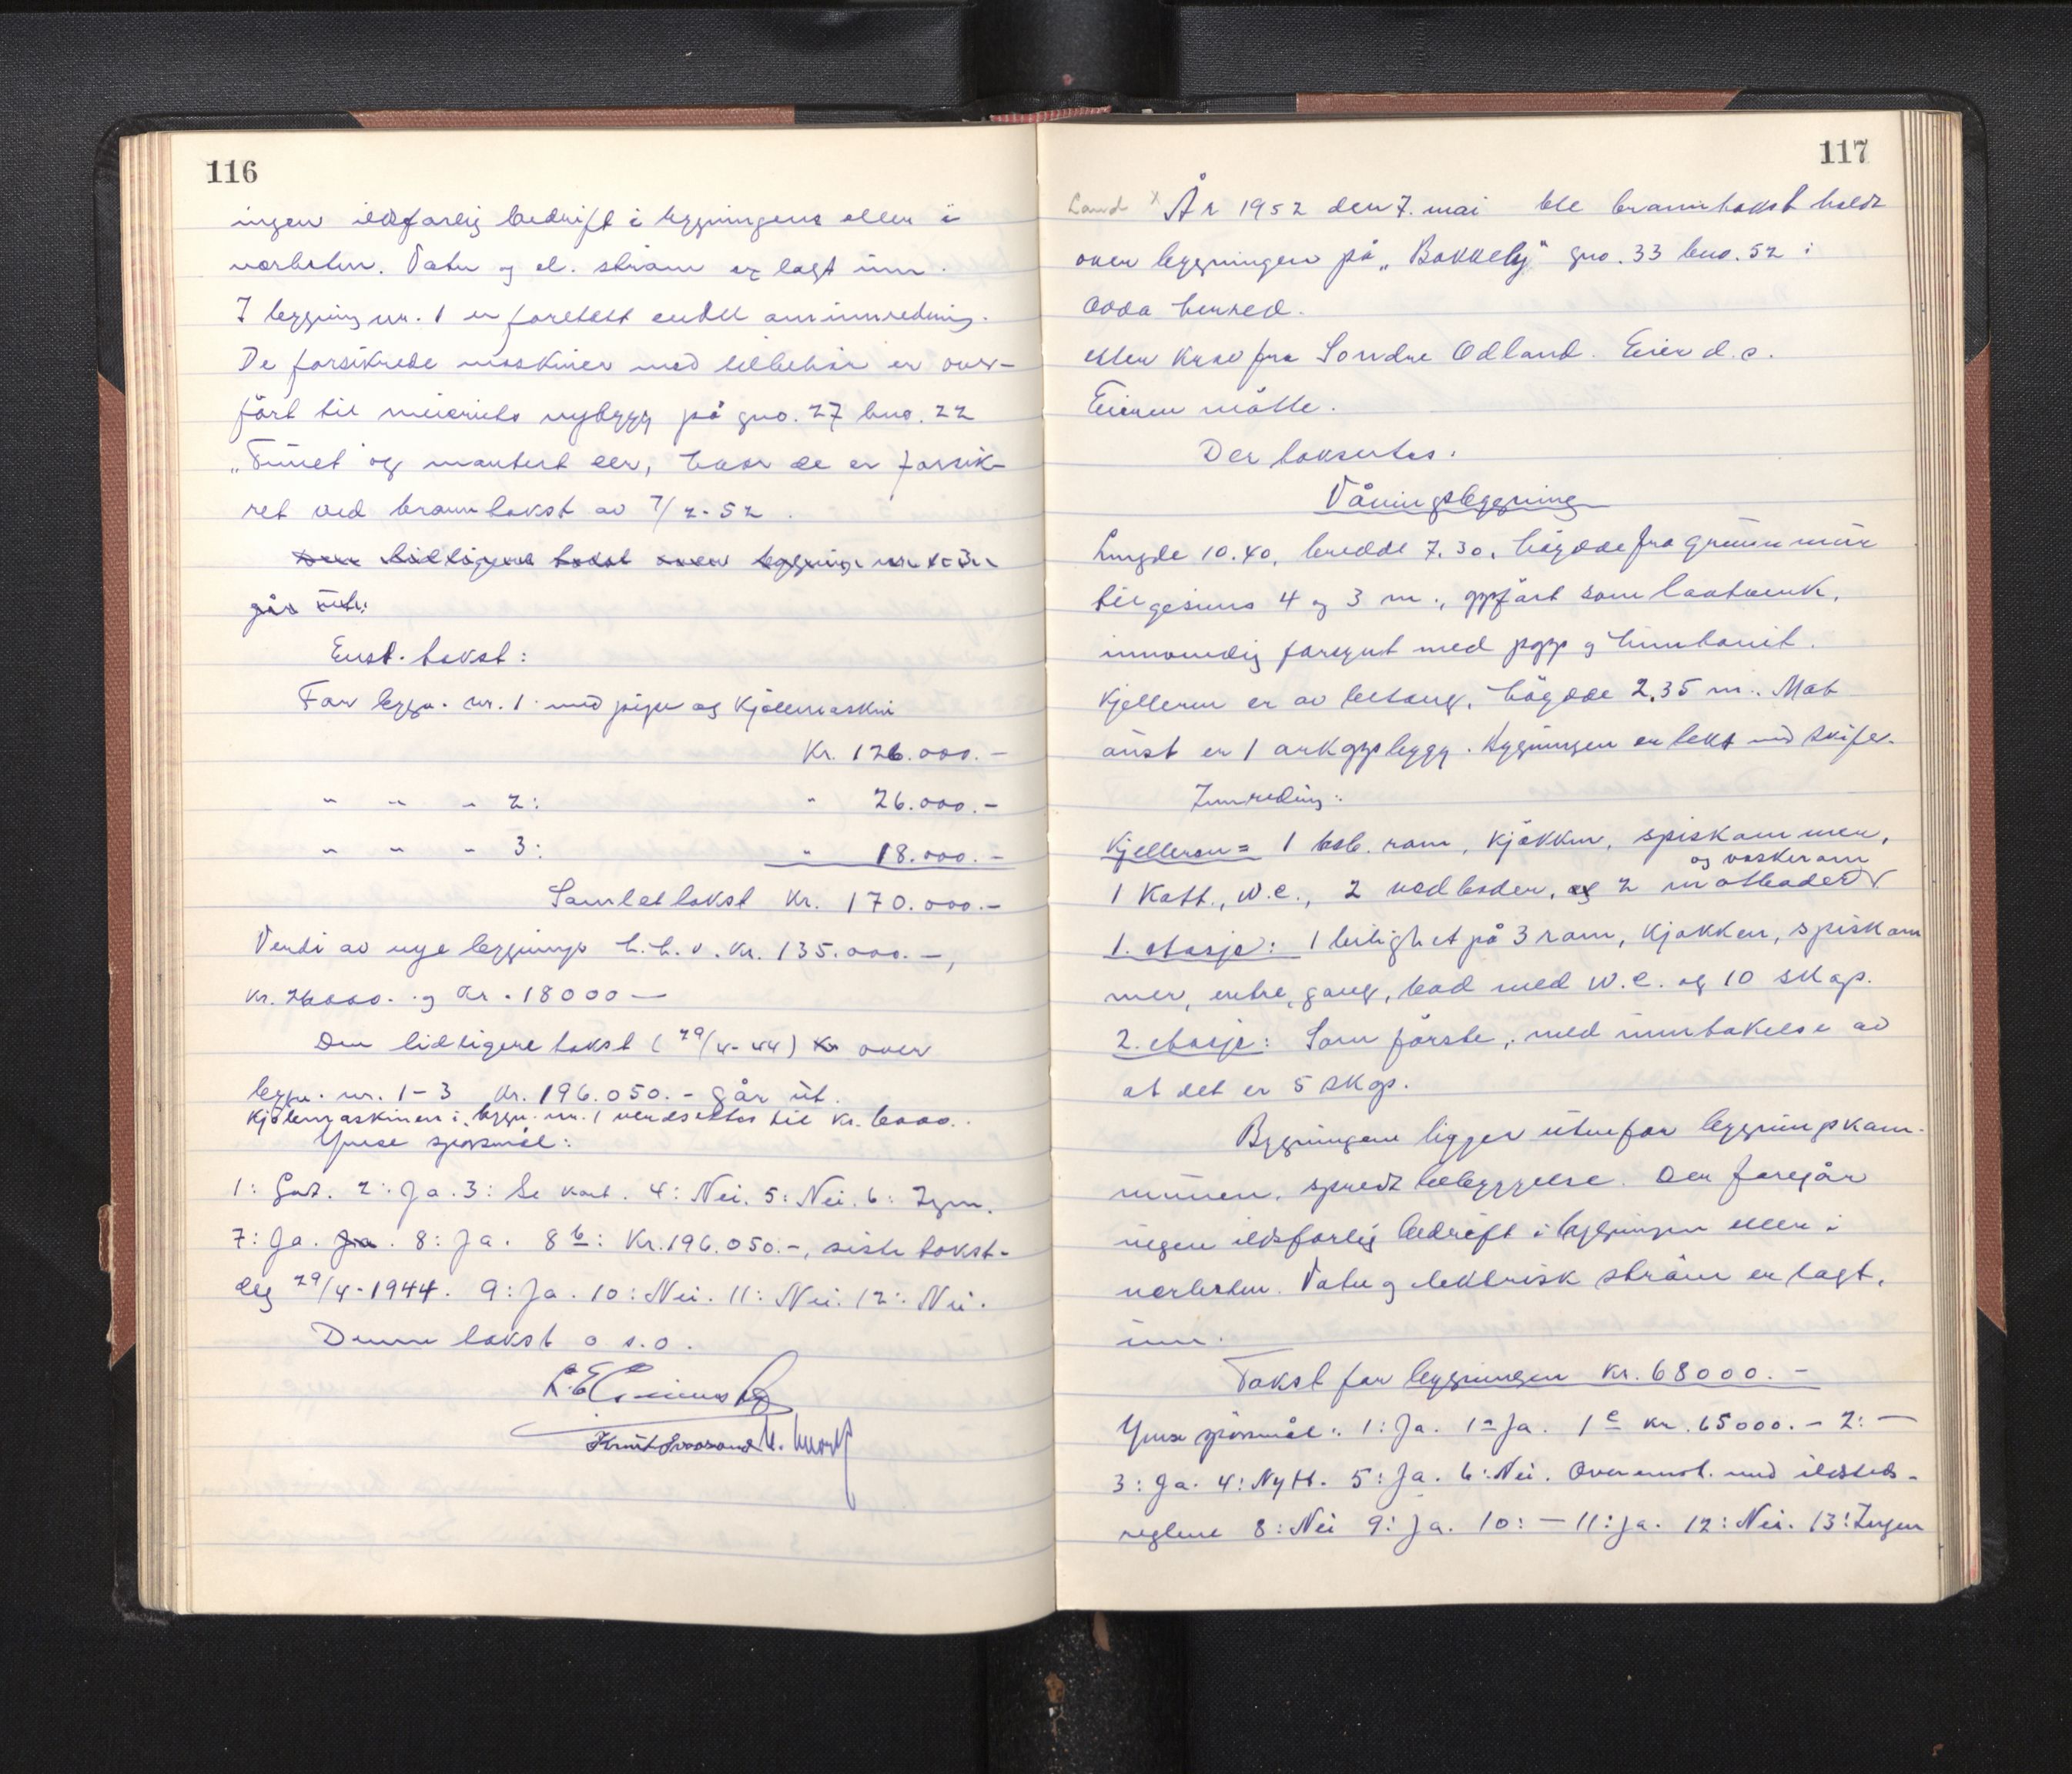 116
ingen ildsfarlig bedrift i bygningene eller i
nærheten. Vatn og el. strøm er lagt inn.
I bygning nr. 1 er foretatt endel ominnredning.
De forsikrede maskiner med tilbehør er over-
ført til meieriets nybygg på gno. 27 bno. 22
„Tunet" og montert der, hvor de er forsik-
ret ved branntakst av 7/2-52.
Den tidligere takst over bygning nr 1-3
går ut:
Enst. takst:
For bygn. nr. 1 med pipe og kjølemaskin
Kr. 126.000.-
" " " 2: " 26.000.-
" " " 3: " 18.000.-
Samlet takst Kr. 170.000.-
Verdi av nye bygninger h.h.v. Kr. 135.000.-,
Kr. 26000.- og Kr. 18000—
Den tidligere takst (29/4-44) Kr over
bygn. nr. 1-3 Kr. 196.050.- går ut.
Kjølemaskinen i bygn. nr. 1 verdsettes til Kr. 6000.-
Ymse spørsmål:
1: God. 2: Ja. 3: Se kart. 4: Nei. 5: Nei. 6: Ingen.
7: Ja. Ja. 8: Ja. 8b: Kr. 196.050.-, siste takst-
dag 29/4-1944. 9: Ja. 10: Nei. 11: Nei. 12: Nei.
Denne takst o s.o.
117
Land x År 1952 den 7. mai ble branntakst holdt
over bygningen på „Bakkely" gno. 33 bno. 52 i
Odda herred.
etter krav fra Sondre Odland. Eier d.s.
Eieren møtte.
Der takseres:
Våningsbygning
Lengde 10.40, bredde 7.30, høgde fra grunnmur
til gesims 4 og 3 m., oppført som laftverk,
innvendig forsynt med papp og huntonit.
Kjelleren er av betong, høgde 2.35 m. Mot
aust er 1 arkoppbygg. Bygningen er tekt med skifer.
Innredning:
Kjelleren= 1 beb. rom, kjøkken, spiskammer,
og vaskerom
1 kott., W.C., 2 vedboder, og 2 matboder
1. etasje: 1 leilighet på 3 rom, kjøkken, spiskam
mer, entre, gang, bad med W.C. og 10 skap.
2. etasje: Som første, med unntakelse av
at det er 5 skap.
Bygningen ligger utenfor bygningskom-
munen, spredt bebyggelse. Der foregår
ingen ildsfarlig bedrift i bygningen eller i
nærheten. Vatn og elektrisk strøm er lagt,
inn.
Takst for bygningen Kr. 68000.-
Ymse spørsmål: 1: Ja. 1a Ja. 1c Kr. 65000.- 2: —
3: Ja. 4: Nytt. 5: Ja. 6: Nei. Overenst. med ildsteds-
reglene 8: Nei 9: Ja. 10: — 11: Ja. 12: Nei. 13: Ingen